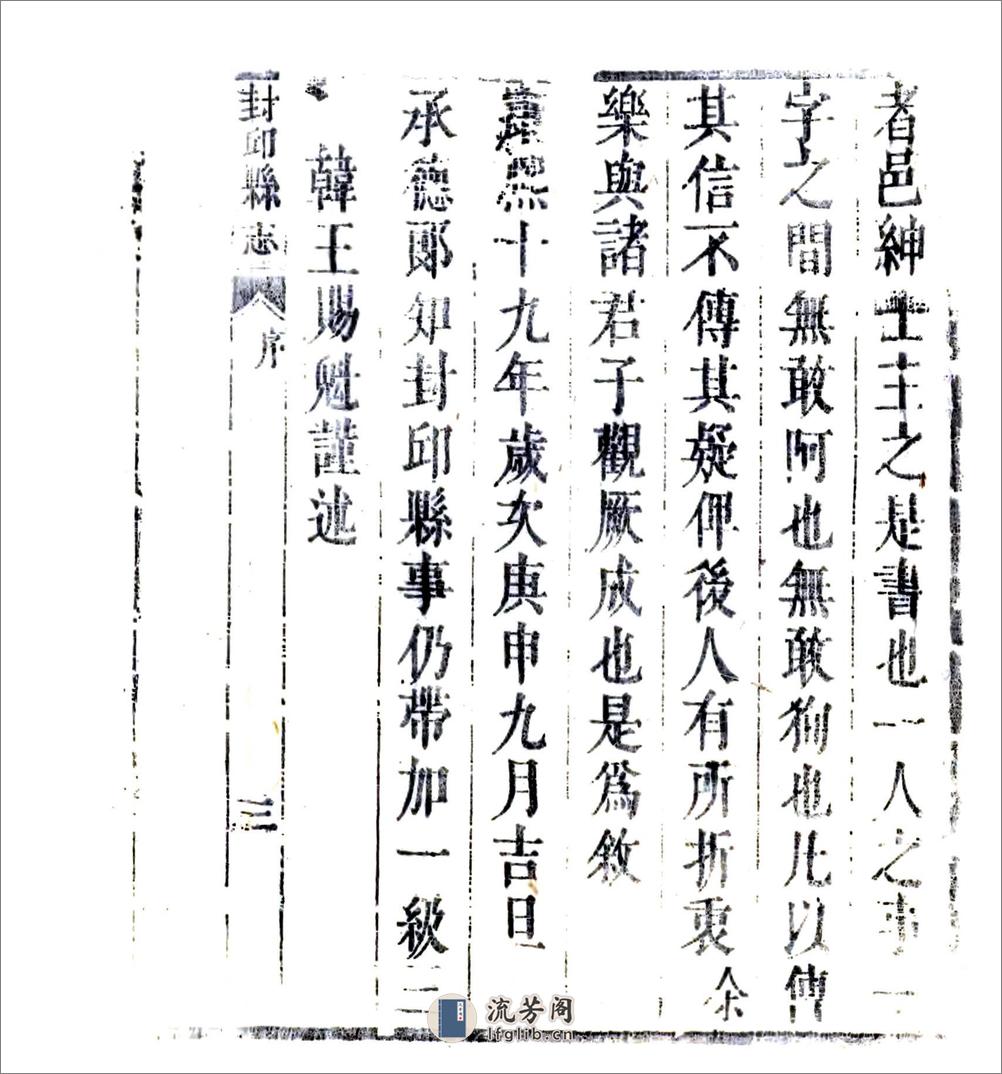 者邑紳士主之是書也一人之事一
字之間無敢阿也無敢狥也凡以傳
其信不傳其疑俾後人有所折衷余
樂與諸君子觀厥成也是爲敘
康熙十九年歲次庚申九月吉旦
承德郎知封邱縣事仍帶加一級三
韓王賜魁謹述
封邱縣志
序
三
流芳阁
lfglib.cn